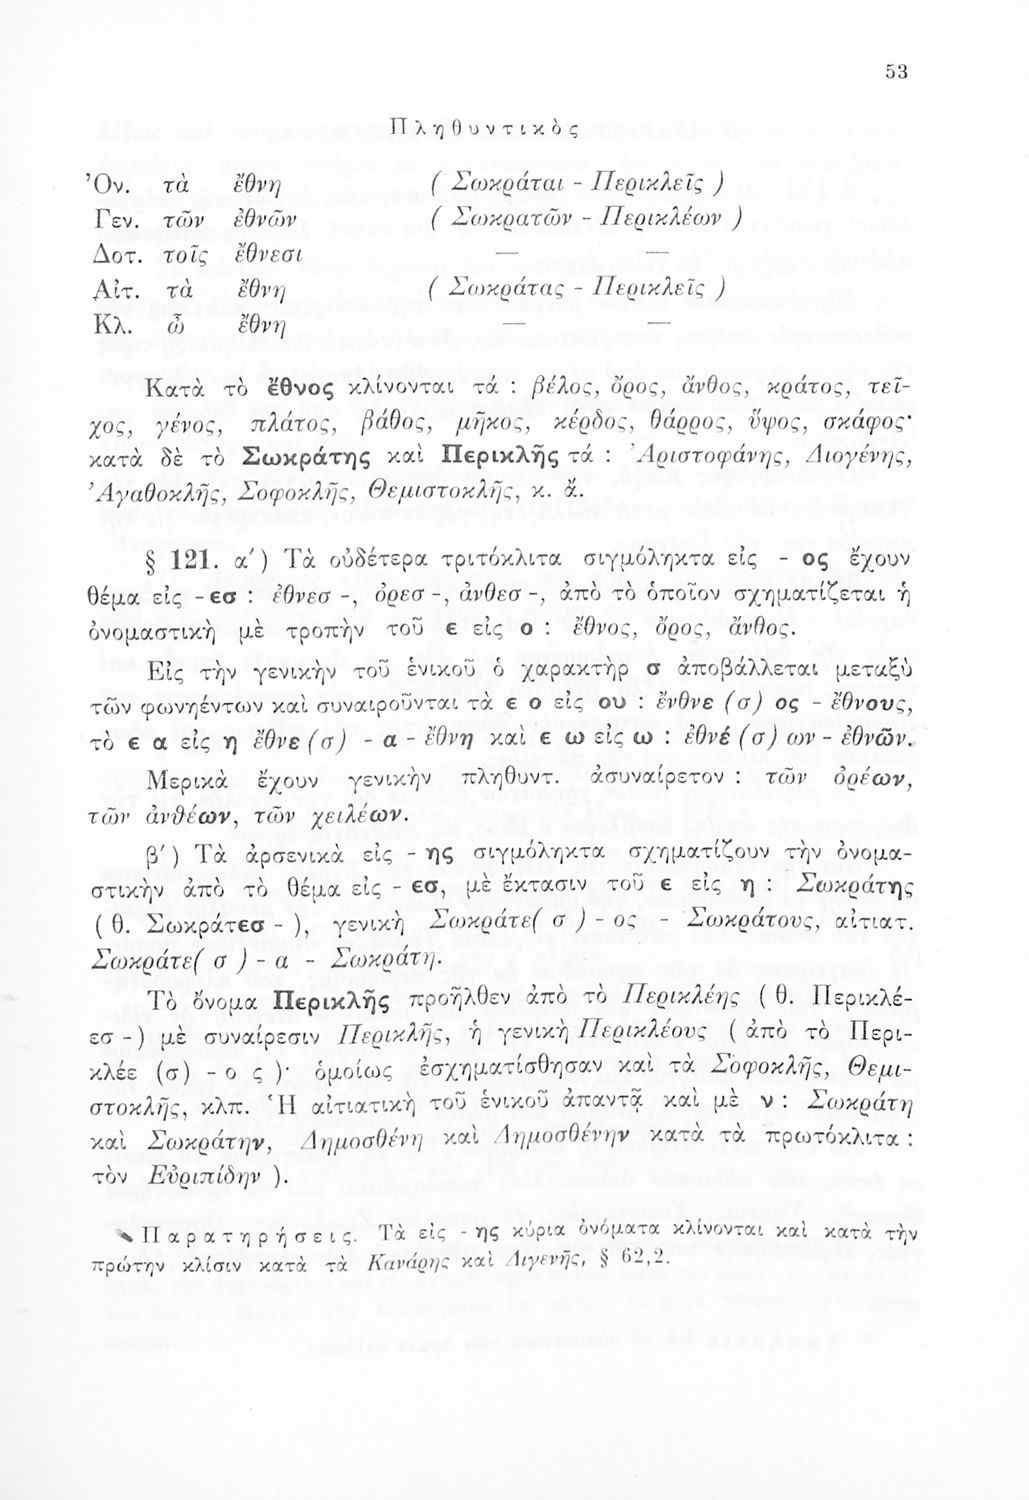 53
Πληθυντικὸς
Ὀν. τὰ ἔθνη ( Σωκράται - Περικλεῖς )
Γεν. τῶν ἐθνῶν ( Σωκρατῶν - Περικλέων )
Δοτ. τοῖς ἔθνεσι — —
Αἰτ. τὰ ἔθνη ( Σωκράτας - Περικλεῖς )
Κλ. ὦ ἔθνη — —
Κατὰ τὸ ἔθνος κλίνονται τά : βέλος, ὄρος, ἄνθος, κράτος, τεῖ-
χος, γένος, πλάτος, βάθος, μῆκος, κέρδος, θάρρος, ὕψος, σκάφος·
κατὰ δὲ τὸ Σωκράτης καὶ Περικλῆς τά : Ἀριστοφάνης, Διογένης,
Ἀγαθοκλῆς, Σοφοκλῆς, Θεμιστοκλῆς, κ. ἄ.
§ 121. α') Τὰ οὐδέτερα τριτόκλιτα σιγμόληκτα εἰς - ος ἔχουν
θέμα εἰς - εσ : ἐθνεσ -, ὀρεσ -, ἀνθεσ -, ἀπὸ τὸ ὁποῖον σχηματίζεται ἡ
ὀνομαστικὴ μὲ τροπὴν τοῦ ε εἰς ο : ἔθνος, ὄρος, ἄνθος.
Εἰς τὴν γενικὴν τοῦ ἑνικοῦ ὁ χαρακτὴρ σ ἀποβάλλεται μεταξὺ
τῶν φωνηέντων καὶ συναιροῦνται τὰ ε ο εἰς ου : ἔνθνε (σ) ος - ἔθνους,
τὸ ε α εἰς η ἔθνε (σ) - α - ἔθνη καὶ ε ω εἰς ω : ἐθνέ (σ) ων - ἐθνῶν.
Μερικὰ ἔχουν γενικὴν πληθυντ. ἀσυναίρετον : τῶν ὀρέων,
τῶν ἀνθέων, τῶν χειλέων.
β') Τὰ ἀρσενικὰ εἰς - ης σιγμόληκτα σχηματίζουν τὴν ὀνομα-
στικὴν ἀπὸ τὸ θέμα εἰς - εσ, μὲ ἔκτασιν τοῦ ε εἰς η : Σωκράτης
( θ. Σωκράτεσ - ), γενικὴ Σωκράτε( σ ) - ος - Σωκράτους, αἰτιατ.
Σωκράτε( σ ) - α - Σωκράτη.
Τὸ ὄνομα Περικλῆς προῆλθεν ἀπὸ τὸ Περικλέης ( θ. Περικλέ-
εσ -) μὲ συναίρεσιν Περικλῆς, ἡ γενικὴ Περικλέους ( ἀπὸ τὸ Περι-
κλέε (σ) - ο ς )· ὁμοίως ἐσχηματίσθησαν καὶ τὰ Σοφοκλῆς, Θεμι-
στοκλῆς, κλπ. Ἡ αἰτιατικὴ τοῦ ἑνικοῦ ἀπαντᾷ καὶ μὲ ν : Σωκράτη
καὶ Σωκράτην, Δημοσθένη καὶ Δημοσθένην κατὰ τὰ πρωτόκλιτα :
τὸν Εὐριπίδην ).
Παρατηρήσεις. Τὰ εἰς - ης κύρια ὀνόματα κλίνονται καὶ κατὰ τὴν
πρώτην κλίσιν κατὰ τὰ Κανάρης καὶ Λιγενῆς, § 62,2.